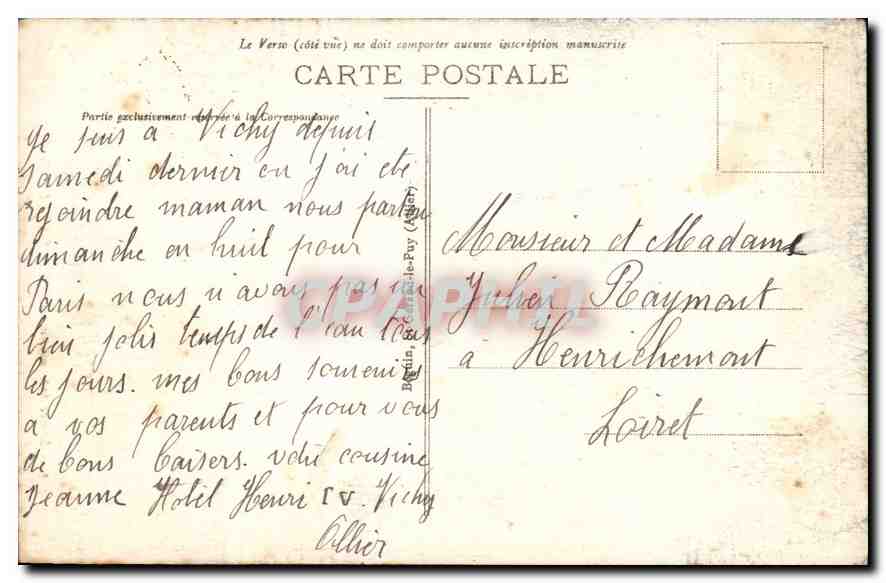 Le Verso (côté vue) ne doit comporter aucune inscription manuscrite
CARTE POSTALE
Partie exclusivement réservée à la Correspondance
Je suis a Vichy depuis
samedi dernier ou j'ai été
rejoindre maman nous partons
dimanche en huit pour
Paris nous n'avons pas un
bien jolis temps de l'eau tous
les jours. mes bons souvenirs
a vos parents et pour vous
de bons baisers. votre cousine
Jeanne Hotel Henri IV. Vichy
Allier
Béguin, St-Gérand-le-Puy (Allier)
Monsieur et Madame
Julien Raymont
a Henrichemont
Loiret
CPAPHIL